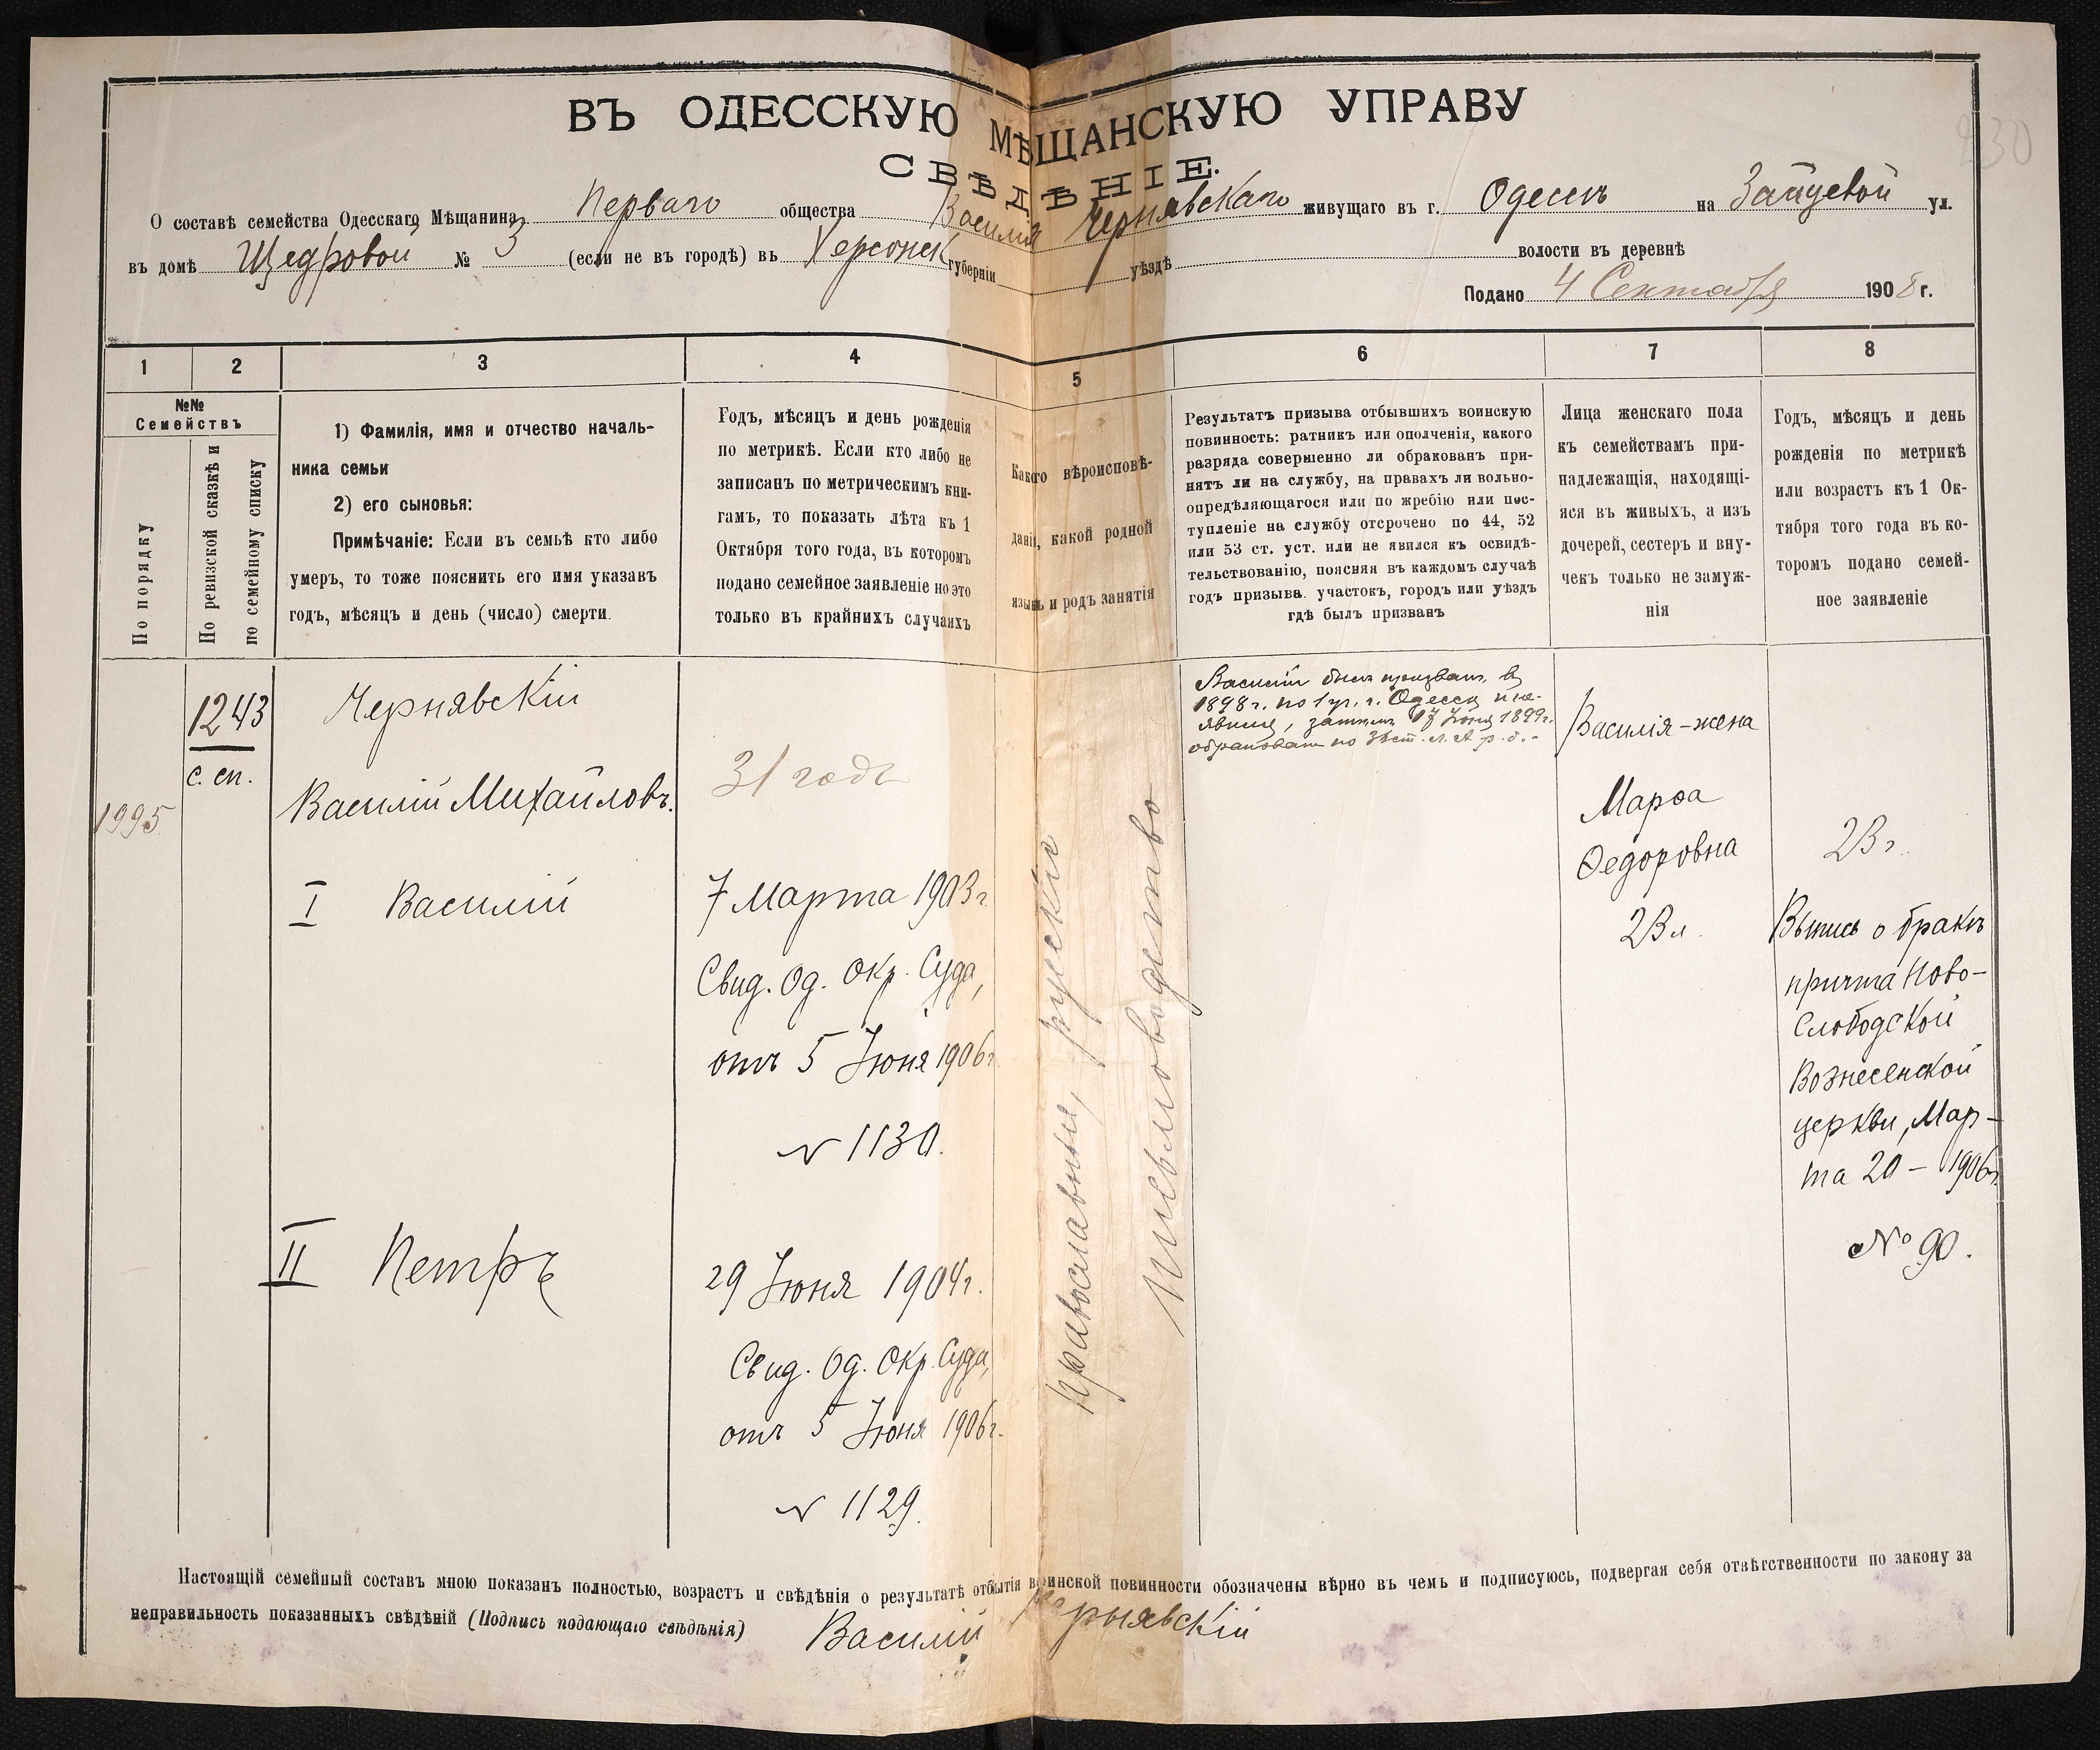 230
ВЪ ОДЕССКУЮ МѢЩАНСКУЮ УПРАВУ
СВѢДѢНІЕ.
О составѣ семейства Одесскаго Мѣщанина Перваго общества Василія Чернявскаго живущаго въ г. Одессѣ на Зайцевой ул.
въ домѣ Щедровой № 3 (если не въ городѣ) въ Херсонск губерніи уѣздѣ волости въ деревнѣ
Подано 4 Сентября 1908 г.
1 2 3 4 5 6 7 8
№№
Семействъ
По порядку
По ревизской сказкѣ и
по семейному списку
1) Фамилія, имя и отчество началь-
ника семьи
2) его сыновья:
Примѣчаніе: Если въ семьѣ кто либо
умеръ, то тоже пояснить его имя указавъ
годъ, мѣсяцъ и день (число) смерти.
Годъ, мѣсяцъ и день рожденія
по метрикѣ. Если кто либо не
записанъ по метрическимъ кни-
гамъ, то показать лѣта къ 1
Октября того года, въ которомъ
подано семейное заявленіе но это
только въ крайнихъ случаяхъ
Какого вѣроисповѣ-
данія, какой родной
языкъ и родъ занятія
Результатъ призыва отбывшихъ воинскую
повинность: ратникъ или ополченія, какого
разряда совершенно ли обракованъ при-
нятъ ли на службу, на правахъ ли вольно-
опредѣляющагося или по жребію или пос-
тупленіе на службу отсрочено по 44, 52
или 53 ст. уст. или не явился къ освидѣ-
тельствованію, поясняя въ каждомъ случаѣ
годъ призыва. участокъ, городъ или уѣздъ
гдѣ былъ призванъ
Лица женскаго пола
къ семействамъ при-
надлежащія, находящі-
яся въ живыхъ, а изъ
дочерей, сестеръ и вну-
чекъ только не замуж-
нія
Годъ, мѣсяцъ и день
рожденія по метрикѣ
или возрастъ къ 1 Ок-
тября того года въ ко-
торомъ подано семей-
ное заявленіе
1995
1243
с. сп.
Чернявскій
Василій Михайловъ.
I Василій
II Петръ
31 годъ
7 Марта 1903 г
Свид. Од. Окр. Суда,
отъ 5 Іюня 1906 г
№ 1130.
29 Іюня 1904 г.
Свид. Од. Окр. Суда,
отъ 5 Іюня 1906 г.
№ 1129.
православные, русскіе
письмоводство
Василій былъ призванъ въ
1898 г. по 1 уч. г. Одессы и не-
явился, затѣмъ 17 Іюня 1899 г.
обракованъ по
Василія - жена
Марѳа
Ѳедоровна
23 л.
23 г.
Выпись о бракѣ
причта Ново-
Слободской
Вознесенской
церкви, Мар-
та 20 - 1906 г.
№ 90.
Настоящій семейный составъ мною показанъ полностью, возрастъ и свѣдѣнія о результатѣ отбытія воинской повинности обозначены вѣрно въ чемъ и подписуюсь, подвергая себя отвѣтственности по закону за
неправильность показанныхъ свѣдѣній (Подпись подающаго свѣдѣнія) Василій Чернявскій